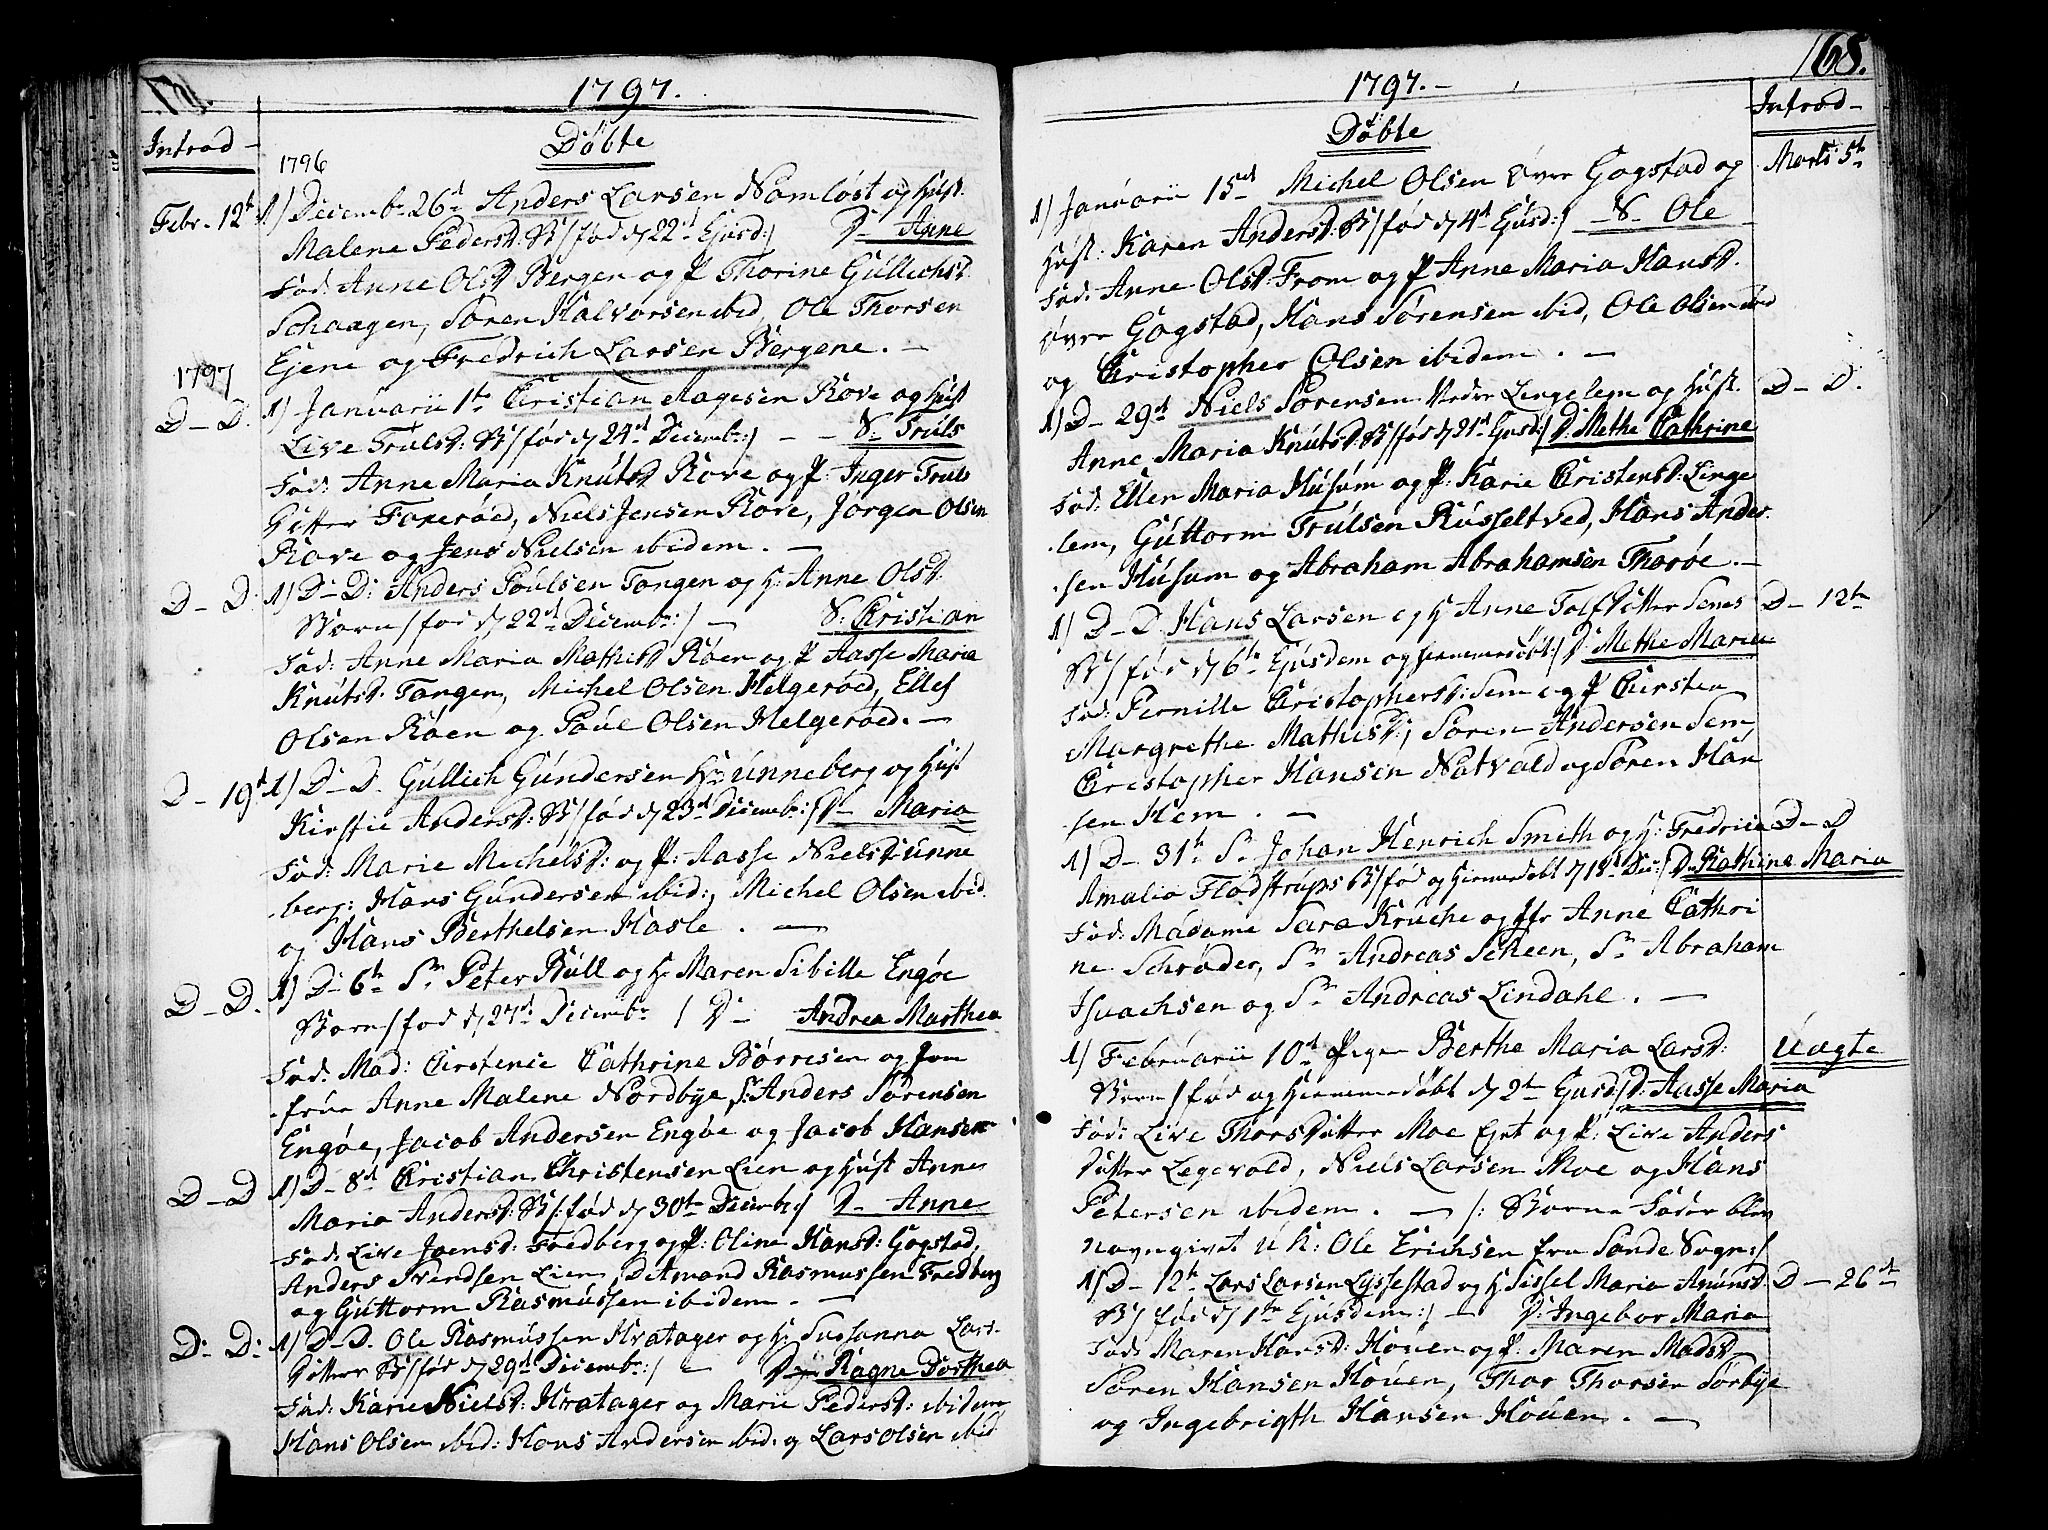 1797.
Introd
Döbte
1796
Febr. 12t 1) Decembr 26d Anders Larsen Namløst og Hust.
Malene Pedersd: B/ fød d 22d Ejusd:/ D- Anne
Fad: Anne Olsd Bergen og P Thorine Gullichsd.
Schaagen, Søren Halvorsen ibid, Ole Thorsen
Ejene og Fredrich Larsen Bergene. -
1797
D - D. 1) Januarii 1te Christian Aagesen Rove og Hust
Live Trulsd: B/ fød d 24d Decembr:/ - - S. Truls
Fad: Anne Maria Knutsd Rove og P: Inger Truls
Ditter Foxerød, Niels Jensen Rove, Jørgen Olsen
Rove og Jens Nielsen ibidem. -
D - D. 1) D- D: Anders Poulsen Tangen og H: Anne Olsd.
Børn/ fød d 22d Decembr:/ - S. Christian
Fad: Anne Maria Mathisd Røen og P Aasse Maria
Knutsd. Tangen, Michel Olsen Helgerøed, Ellef
Olsen Røen og Poul Olsen Helgerøed. -
D - 19d 1) D- D. Gullich Gundersen Unneberg og Hust
Kirstie Andersd: B/ fød d 23d Decembr:/ D- Maria
Fad: Marie Michelsd: og P: Aasse Nielsd Unne
berg: Hans Gundersen ibid:, Michel Olsen ibid.
og Hans Berthelsen Hasle. -
D - D. 1) D- 6te Sr Peter Bull og H: Maren Sibille Engøe
Børn/ fød d 27d Decembr / D- Andrea Marthea
Fad: Mad: Cirstence Cathrine Børresen og Jom
frue Anne Malene Nordbye, Sr Anders Sørensen
Engøe, Jacob Andersen Engøe og Jacob Hansen
D - D 1) D- 8d Christian Christensen Lien og Hust Anne
Maria Andersd: B/ fød d 30te Decembr/ D- Anne
Fad: Live Joensd: Fredberg og P: Oline Hansd: Gogstad,
Anders Svendsen Lien, Amund Rasmussen Fredberg
og Guttorm Rasmussen ibidem. -
D- D: 1) D- D. Ole Rasmussen Hvatager og H: Susanna Lars-
Ditter B/ fød d 29d Decembr:/ - D. Ragne Dorthea
Fad: Karie Nielsd: Hvatager og Marie Pedersd: ibidem
Hans Olsen ibid: Hans Andersen ibid. og Lars Olsen ibid
168.
1797. -
Introd -
Döbte
Marts 5te
1) Januarii 15d Michel Olsen Øvre Gogstad og
Hust: Karen Andersd: B/ fød d 4d Ejusd:/ - S. Ole
Fad: Anne Olsd: From og P Anne Maria Hansd.
Øvre Gogstad, Hans Sørensen ibid, Ole Olsen ibid
og Christopher Olsen ibidem. -
1) D- 29d Niels Sørensen Nedre Lingelem og Hust. D - D.
Anne Maria Knutsd: B/ fød d 21d Ejusd:/ D: Methe Cathrine
Fad: Ellen Maria Husum og P: Karie Christensd: Linge
lem, Guttorm Trulsen Russeltved, Hans Ander
sen Husum og Abraham Abrahamsen Thorøe. -
1) D- D. Hans Larsen og H Anne Tolfsditter Semes D - 12te
B/ fød d 6te Ejusdem og hiemmedøbt:/ D: Methe Maria
Fad: Pernille Christophersd: Sem og P Chirsten
Margrethe Mathisd:, Søren Andersen Sem,
Christopher Hansen Natvald og Søren Han
sen Hem. -
1) D- 31te Sr Johan Henrich Smith og H: Fredrica D - D
Amalia Flodstrups B/ fød og hiemmedøbt d 18d Dec:/ D: Kathine Maria
Fad: Madame Sara Kruche og Jfr Anne Cathri
ne Schrøder, Sr Andreas Scheen, Sr Abraham
Isaachsen og Sr Andreas Lindahl. -
1) Februarii 10d Pigen Berthe Maria Larsd: Uægte
Børn/ fød og hiemmedøbt d 2te Ejusd/ D: Aasse Maria
Fad: Live Thorsditter Moe Gnt og P: Live Anders
ditter Legevold, Niels Larsen Moe og Hans
Petersen ibidem. - /: Børnes Fader blev
navngivet U K: Ole Erichsen fra Sande Sogn:/
1) D- 12te Lars Larsen Lyssestad og H. Sissel Maria Amunsd. D - 26de
B/ fød d 1te Ejusdem:/ - D: Ingebor Maria
Fad: Maren Hansd: Houen og P. Maren Madsd-
Søren Hansen Houen, Thor Thorsen Sørbye
og Ingebrigth Hansen Houen. -